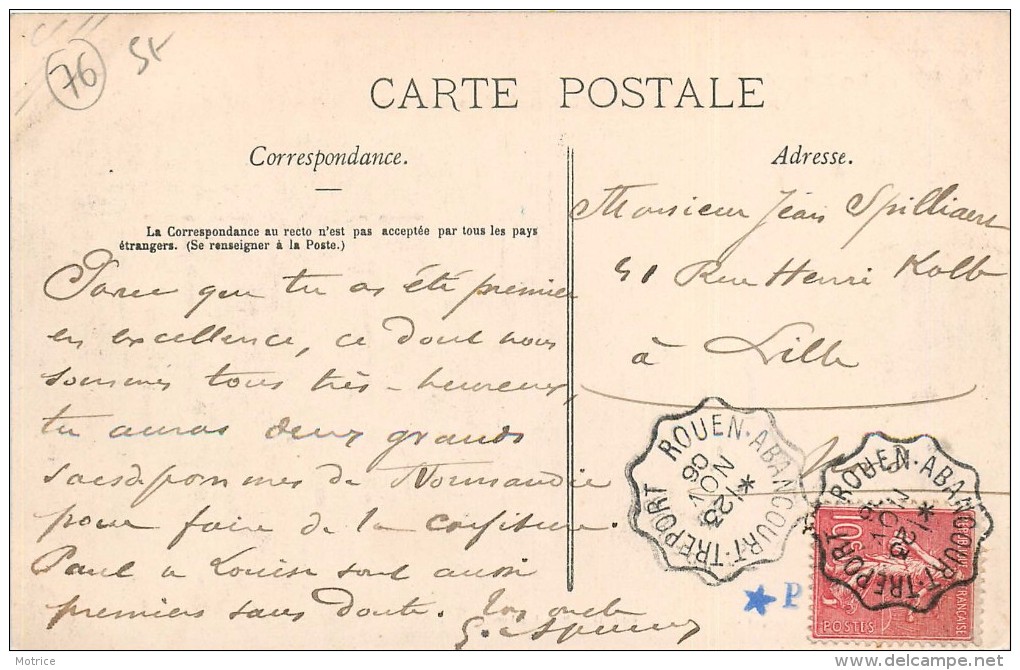 76 St
CARTE POSTALE
Correspondance.
Adresse.
La Correspondance au recto n'est pas acceptée par tous les pays
étrangers. (Se renseigner à la Poste.)
Parce que tu as été premier
en excellence, ce dont nous
sommes tous très-heureux,
tu auras deux grands
sacs de pommes de Normandie
pour faire de la confiture.
Paul et Louise sont aussi
premiers sans doute. Ton oncle
Monsieur Jean Spilliaert
41 Rue Henri Kolb
à Lille
ROUEN-ABANCOURT-TREPORT
*
/23
NOV
06
ROUEN-ABANCOURT-TREPORT
*
P
10c
REPUBLIQUE FRANÇAISE
POSTES
Motrice
delcampe.net